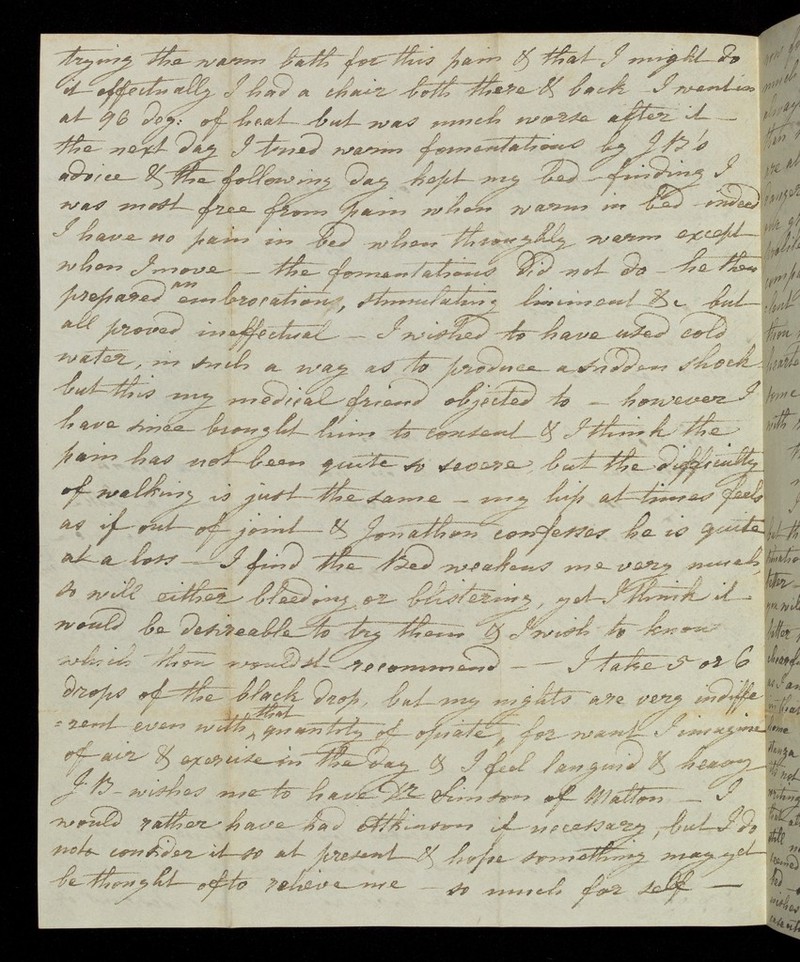 trying the warm bath for this pain & that I might do
it effectually I had a chair both there & back - I went in
at 96 deg: of heat but was much worse after it -
the next day I tried warm fomentations by J B's
advice & the following day kept my bed - finding I
was most free from pain when warm in bed - indeed
I have no pain in bed when throughly warm except
when I move - the fomentations did not do - he then
prepared an embrocations, stimulating liniment &c but
all proved ineffectual - I wished to have used cold
water, in such a way as to produce a sudden shock
but this my medical friend objected to - however I
have since brought him to consent & I think the
pain has not been quite so severe, but the difficulty
of walking is just the same - my hip at times feels
as if out of joint & Jonathan confesses he is quite
at a loss - I find the Bed weakens me very much,
so will either bleeding or blistering, yet I think it
would be desireable to try them & I wish to know
which thou wouldst recommend - - I take 5 or 6
drops of the black drop, but my nights are very indiffe
=rent even with that quantity of opiate, for want I imagine
of air & exercise in the day & I feel languid & heavy
J. B - wishes me to have Dr Simson of Malton - I
would rather have had Atkinson if necessary, but I do
not consider it so at present & hope something may yet
be thought of to relieve me - so much for self -